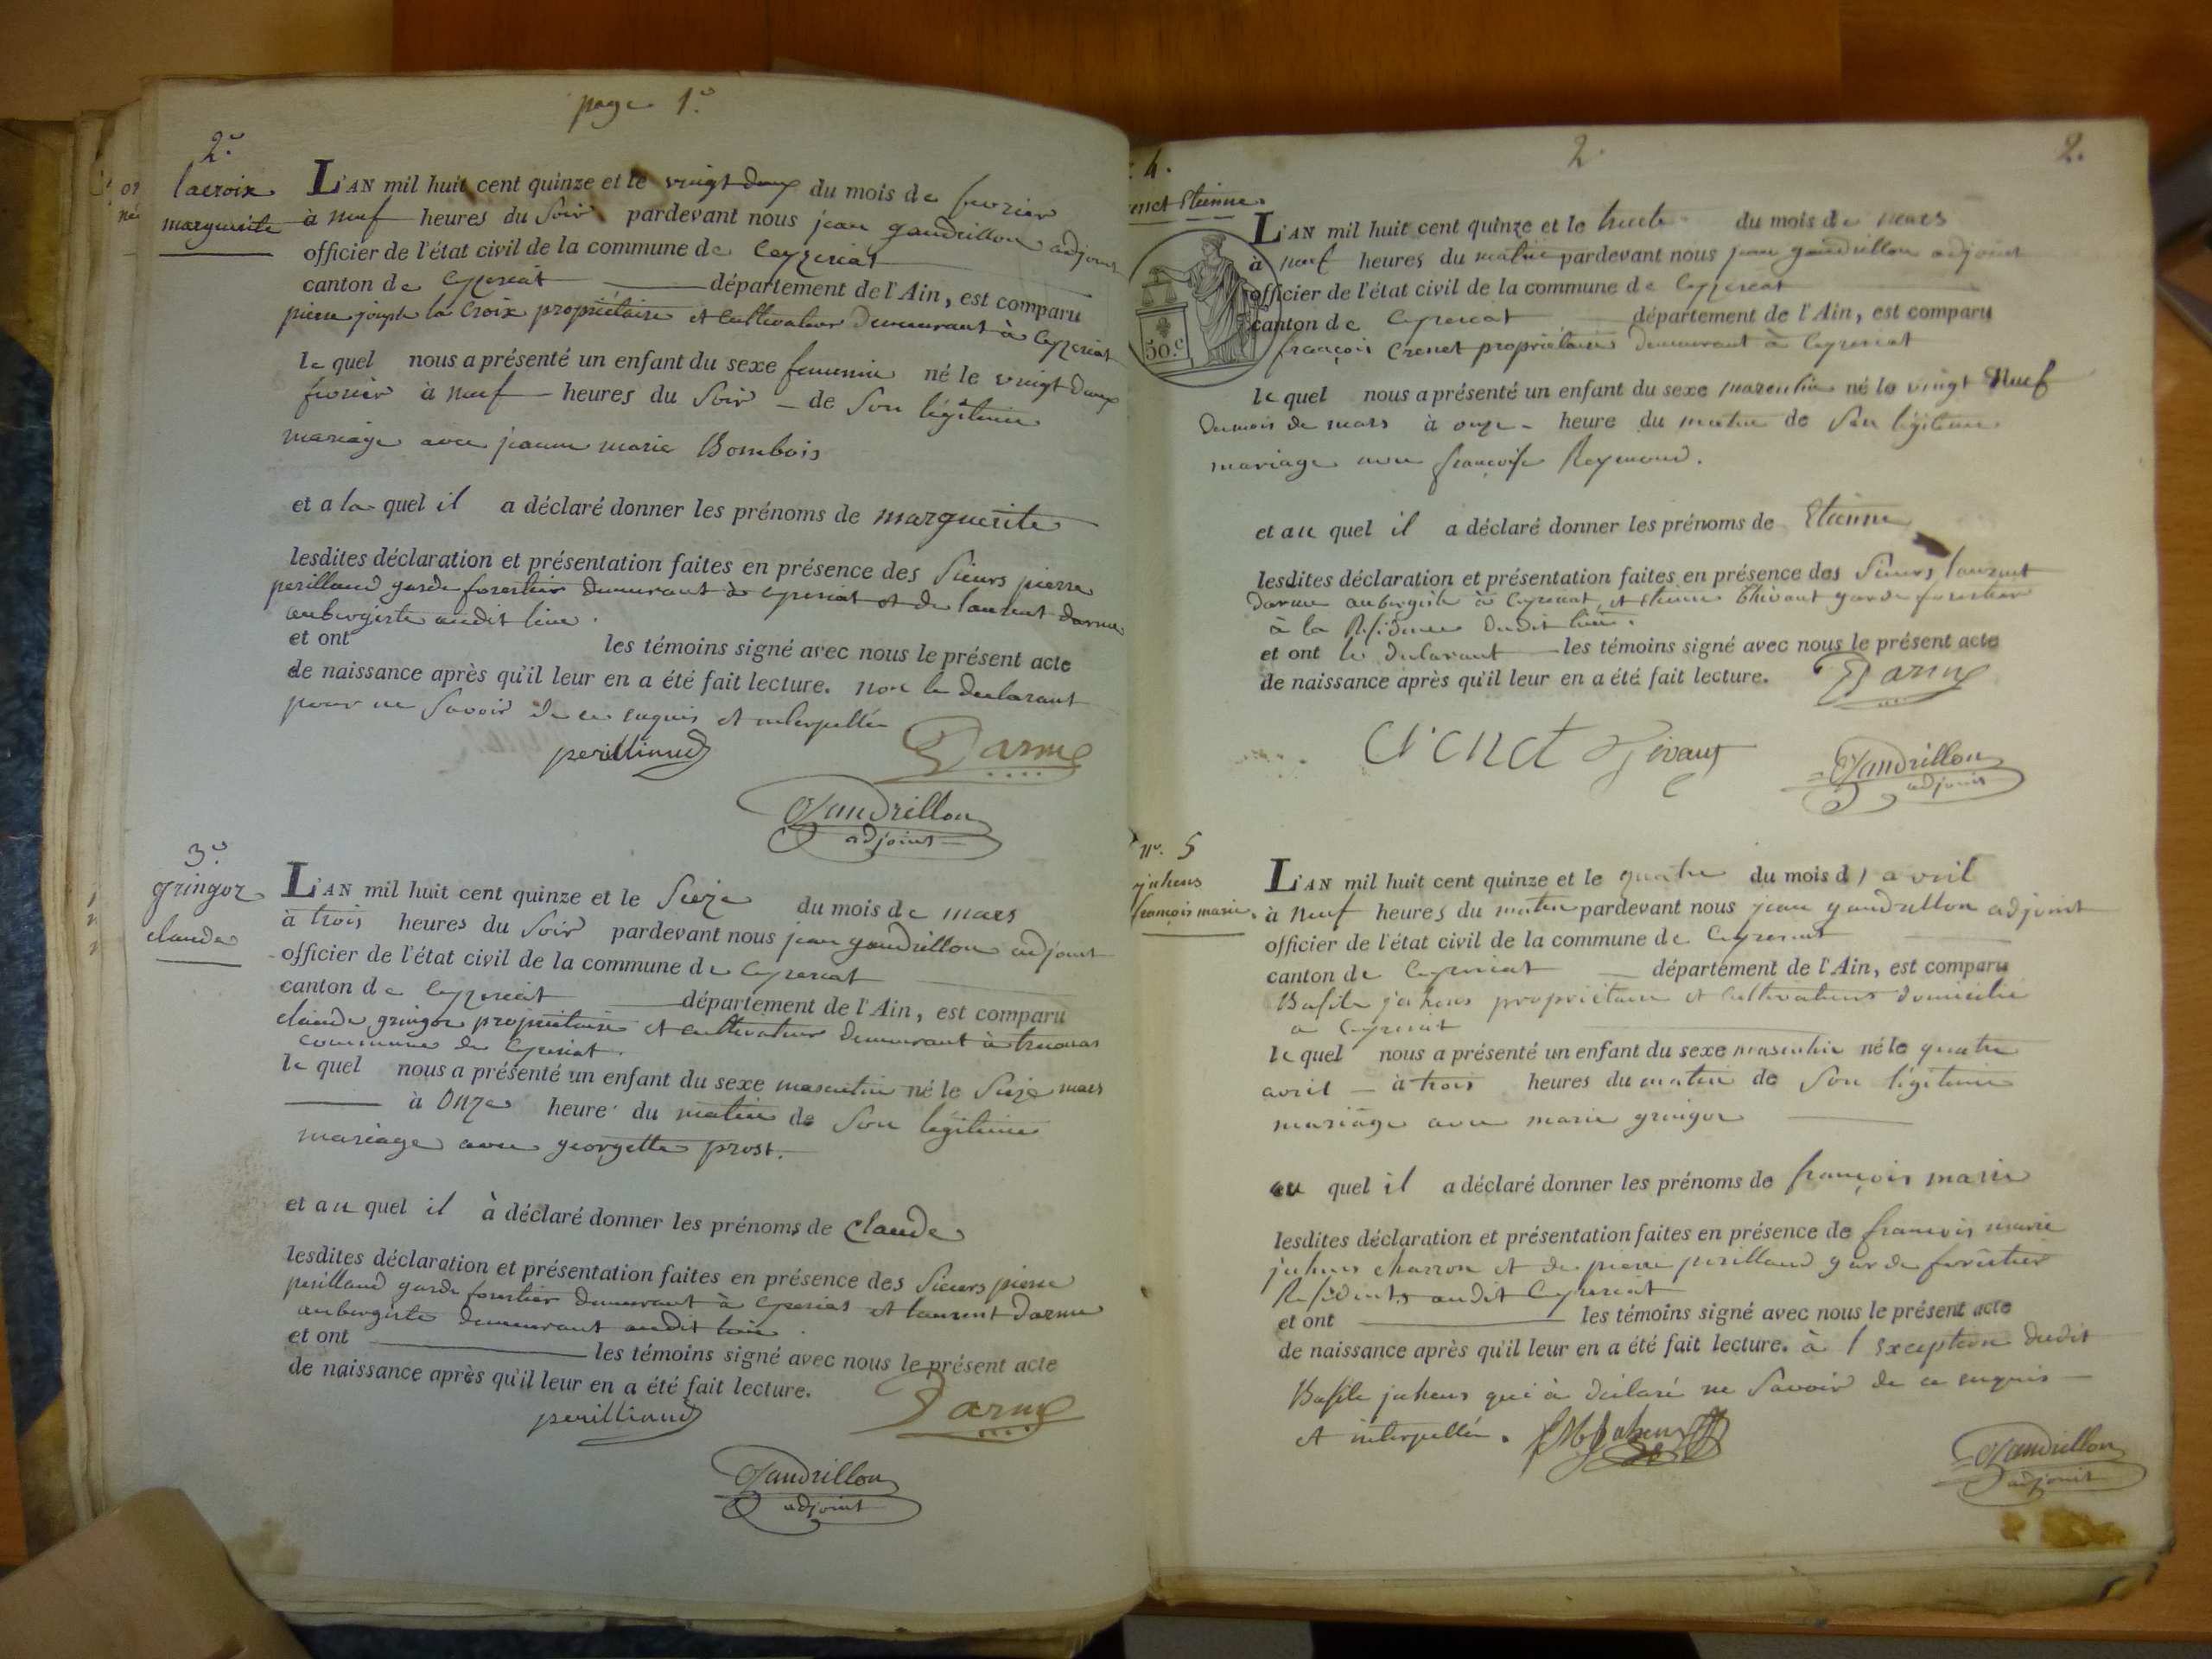 page 1.e
2.e
lacroix
marguerite
L'AN mil huit cent quinze et le vingt deux du mois de fevrier
à neuf heures du soir pardevant nous jean gandrillon adjoint
officier de l'état civil de la commune de Ceyzeriat
canton de Ceyzeriat département de l'Ain, est comparu
pierre joseph la Croix propriétaire et cultivateur demeurant à Ceyzeriat
le quel nous a présenté un enfant du sexe feminin né le vingt deux
fevrier à neuf heures du soir de son légitime
mariage avec jeanne marie Bombois
et a la quel il a déclaré donner les prénoms de marguerite
lesdites déclaration et présentation faites en présence des sieurs pierre
perilliaud garde forestier demeurant à Ceyzeriat et de laurent darme
aubergiste audit lieu.
et ont les témoins signé avec nous le présent acte
de naissance après qu'il leur en a été fait lecture. non le declarant
pour ne savoir de ce enquis et interpellé
perilliaud Darme
Gandrillon
adjoint
3.e
gringoz
claude
L'AN mil huit cent quinze et le seize du mois de mars
à trois heures du soir pardevant nous jean gandrillon adjoint
officier de l'état civil de la commune de Ceyzeriat
canton de Ceyzeriat département de l'Ain, est comparu
claude gringoz propriétaire et cultivateur demeurant à
commune de Ceyzeriat.
le quel nous a présenté un enfant du sexe masculin né le seize mars
à onze heure du matin de son légitime
mariage avec georgette prost.
et au quel il à déclaré donner les prénoms de Claude
lesdites déclaration et présentation faites en présence des sieurs pierre
perilliaud garde forestier demeurant à Ceyzeriat et laurent darme
aubergiste demeurant audit lieu.
et ont les témoins signé avec nous le présent acte
de naissance après qu'il leur en a été fait lecture.
perilliaud Darme
Gandrillon
adjoint
2. 2.
4.
Etienne.
L'AN mil huit cent quinze et le trente du mois de mars
à neuf heures du matin pardevant nous jean gandrillon adjoint
officier de l'état civil de la commune de Ceyzeriat
canton de Ceyzeriat département de l'Ain, est comparu
50.c
françois Crenet propriétaire demeurant à Ceyzeriat
le quel nous a présenté un enfant du sexe masculin né le vingt neuf
du mois de mars à onze heure du matin de son légitime
mariage avec françoise Reymond.
et au quel il a déclaré donner les prénoms de Etienne
lesdites déclaration et présentation faites en présence des sieurs laurent
darme aubergiste à Ceyzeriat et etienne thivant garde forestier
à la Résidence dudit lieu.
et ont le declarant les témoins signé avec nous le présent acte
de naissance après qu'il leur en a été fait lecture. Darme
Crenet
Gandrillon
adjoint
n.o 5
juhens
françois marie.
L'AN mil huit cent quinze et le quatre du mois d'avril
à neuf heures du matin pardevant nous jean gandrillon adjoint
officier de l'état civil de la commune de Ceyzeriat
canton de Ceyzeriat département de l'Ain, est comparu
Basile juhens propriétaire et cultivateur domicilié
a Ceyzeriat
le quel nous a présenté un enfant du sexe masculin né le quatre
avril à trois heures du matin de son légitime
mariage avec marie gringoz
au quel il a déclaré donner les prénoms de françois marie
lesdites déclaration et présentation faites en présence de francois marie
juhens charron et de pierre perilliaud garde forestier
Résidents audit Ceyzeriat
et ont les témoins signé avec nous le présent acte
de naissance après qu'il leur en a été fait lecture. à l'exception dudit
Basile juhens qui à déclaré ne savoir de ce enquis
et interpellé.
Gandrillon
adjoint